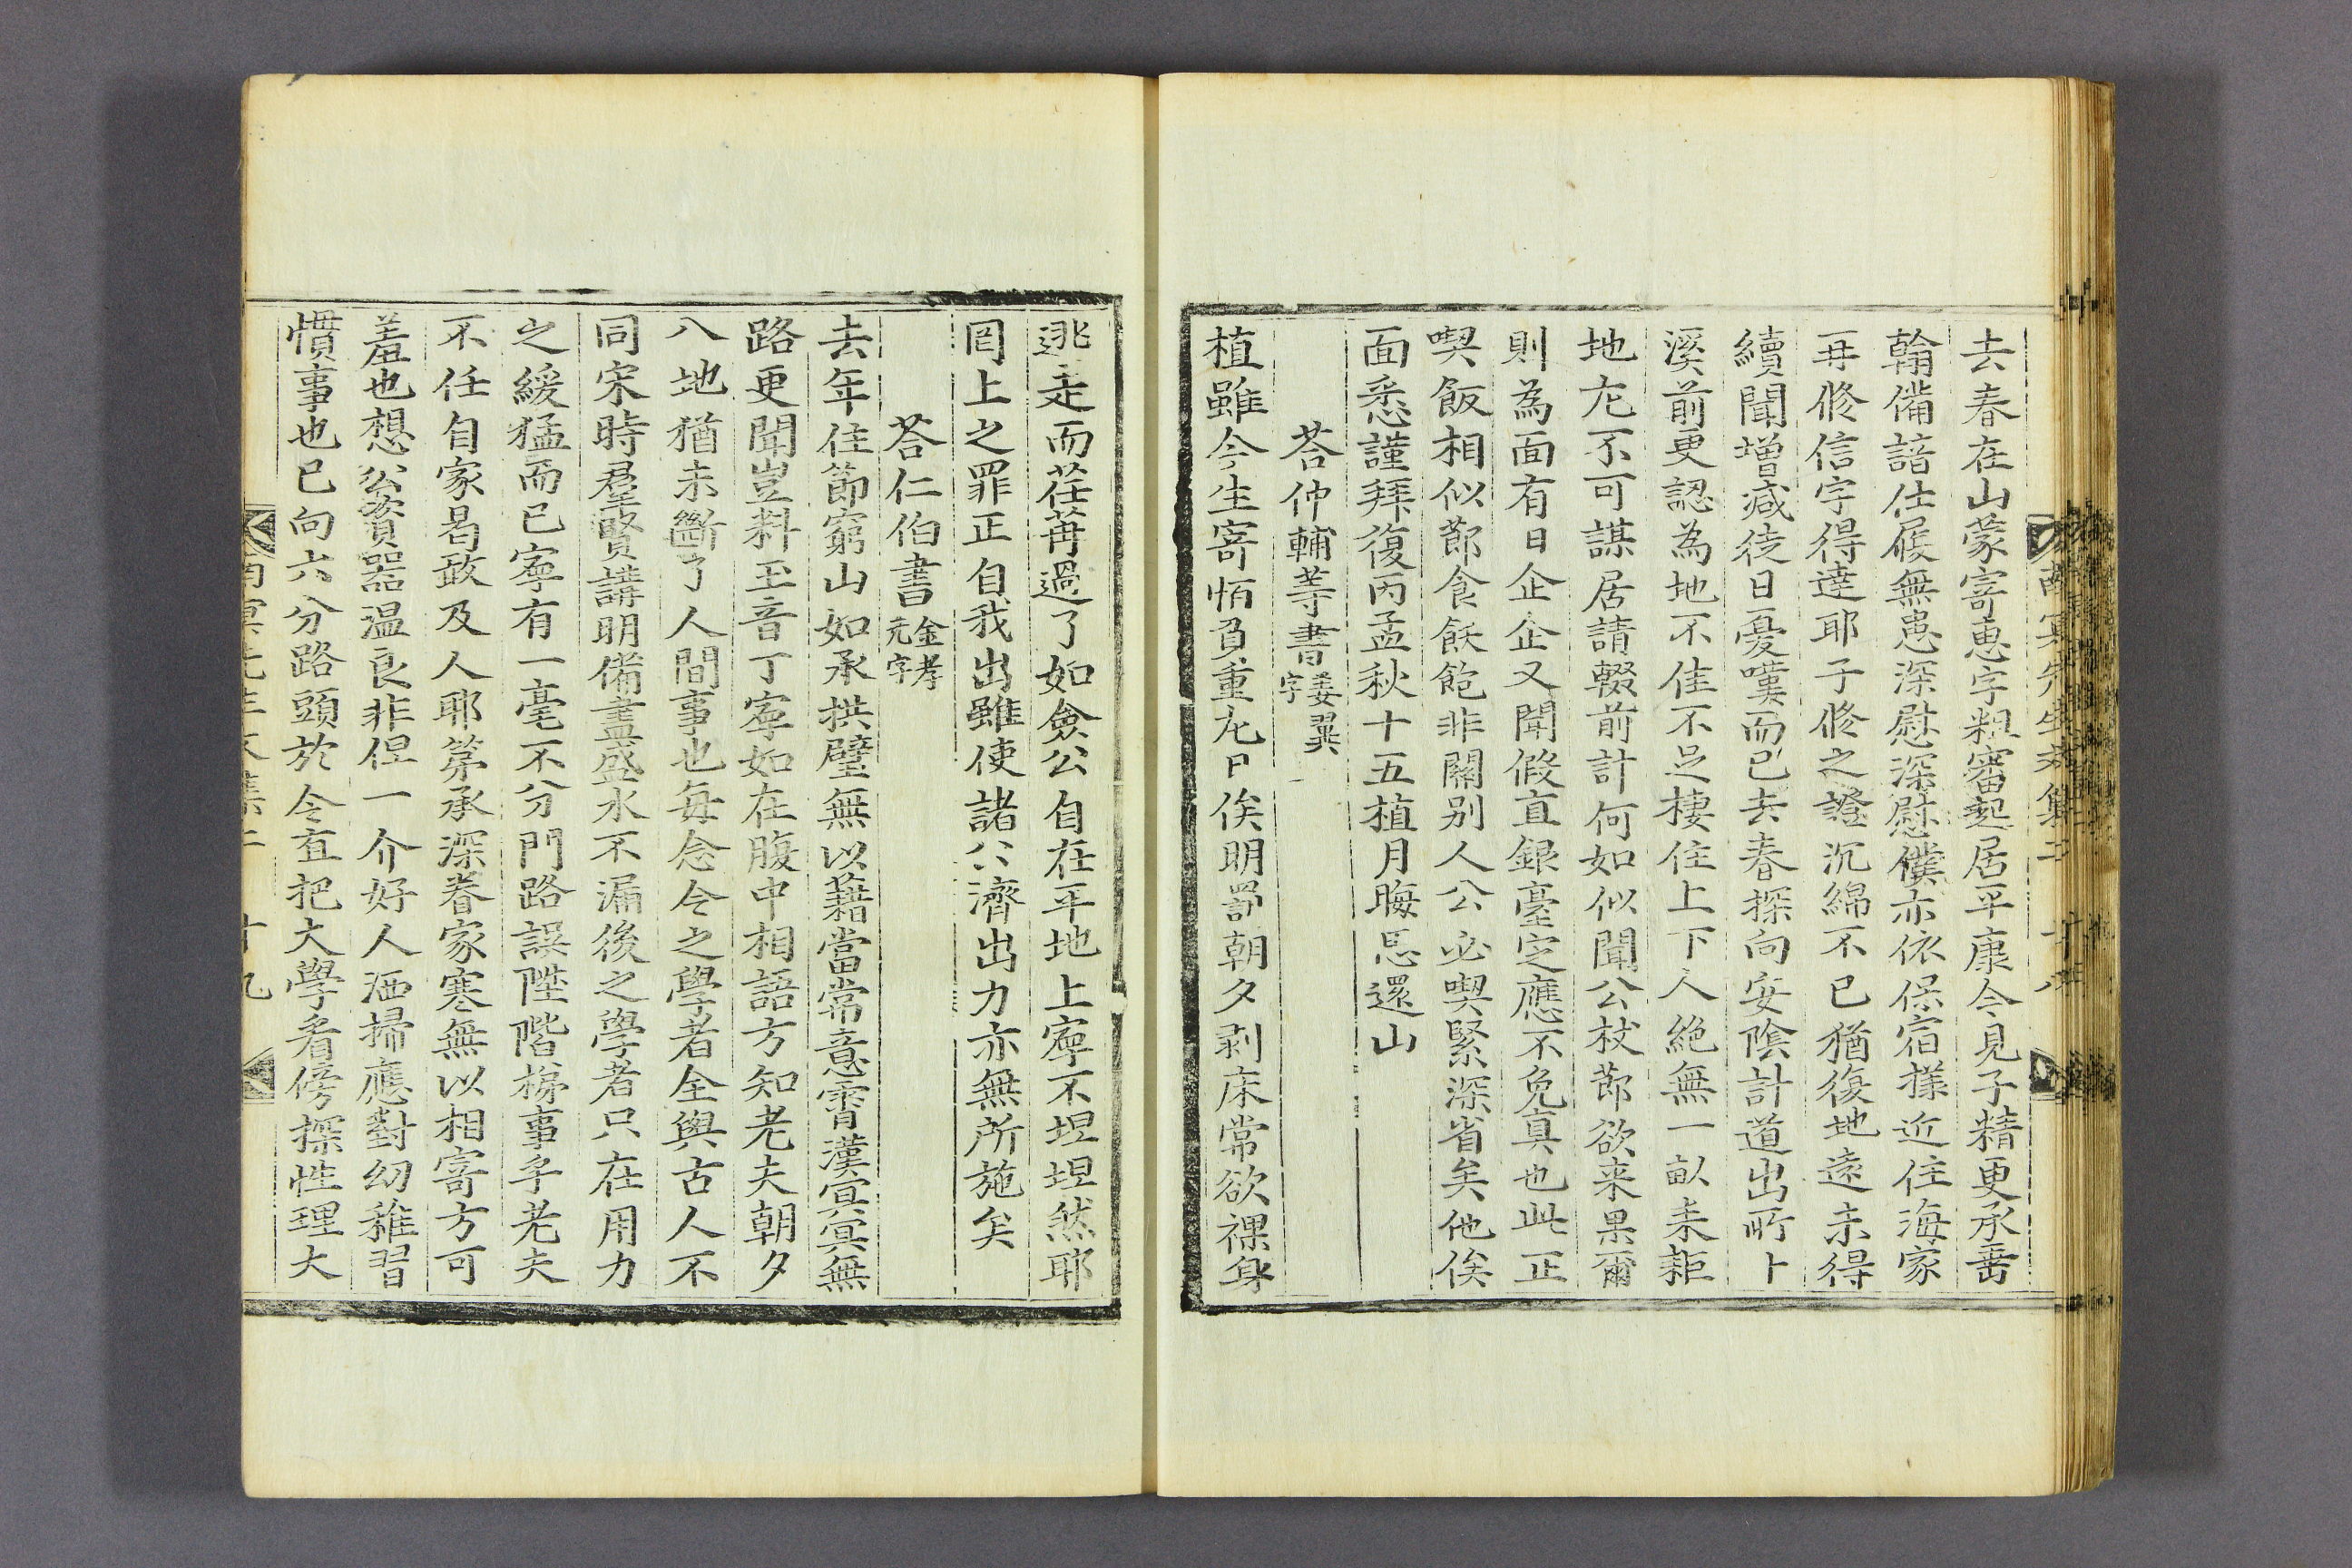 南冥先生文集二 十八
去春在山蒙寄惠字粗審起居平康今見子精更承垂
翰備諳仕履無恙深慰深慰僕亦依保宿㨾近住海家
再修信字得達耶子修之證沉綿不已猶復地遠未得
續聞增减徒日憂嘆而已去春探向安陰計道出所卜
溪前更認為地不佳不足棲住上下人絶無一畝耒耟
地尤不可謀居請輟前計何如似聞公杖節欲来果爾
則為面有日企企又聞假直銀臺定應不免真也此正
喫飯相似節食飫飽非關别人公必喫緊深省矣他俟
面悉謹拜復丙孟秋十五植月晦忌還山
荅仲輔等書姜翼字
植雖今生寄怕負重尤日俟明罰朝夕剥床常欲裸身
逃走而荏苒過了如僉公自在平地上寧不坦坦然耶
罔上之罪正自我出雖使諸公濟出力亦無所施矣
荅仁伯書金孝元字
去年佳節窮山如承拱璧無以藉當常意霄漢㝠㝠無
路更聞豈料玉音丁寧如在腹中相語方知老夫朝夕
入地猶未斷了人間事也每念今之學者全與古人不
同宋時羣賢講明備盡盛水不漏後之學者只在用力
之緩猛而已寧有一毫不分門路誤陞階梯事乎老夫
不任自家曷敢及人耶第承深眷家寒無以相寄方可
羞也想公資器温良非但一介好人洒掃應對幼稚習
慣事也已向六分路頭於今直把大學看傍探性理大
南冥先生文集二 十九